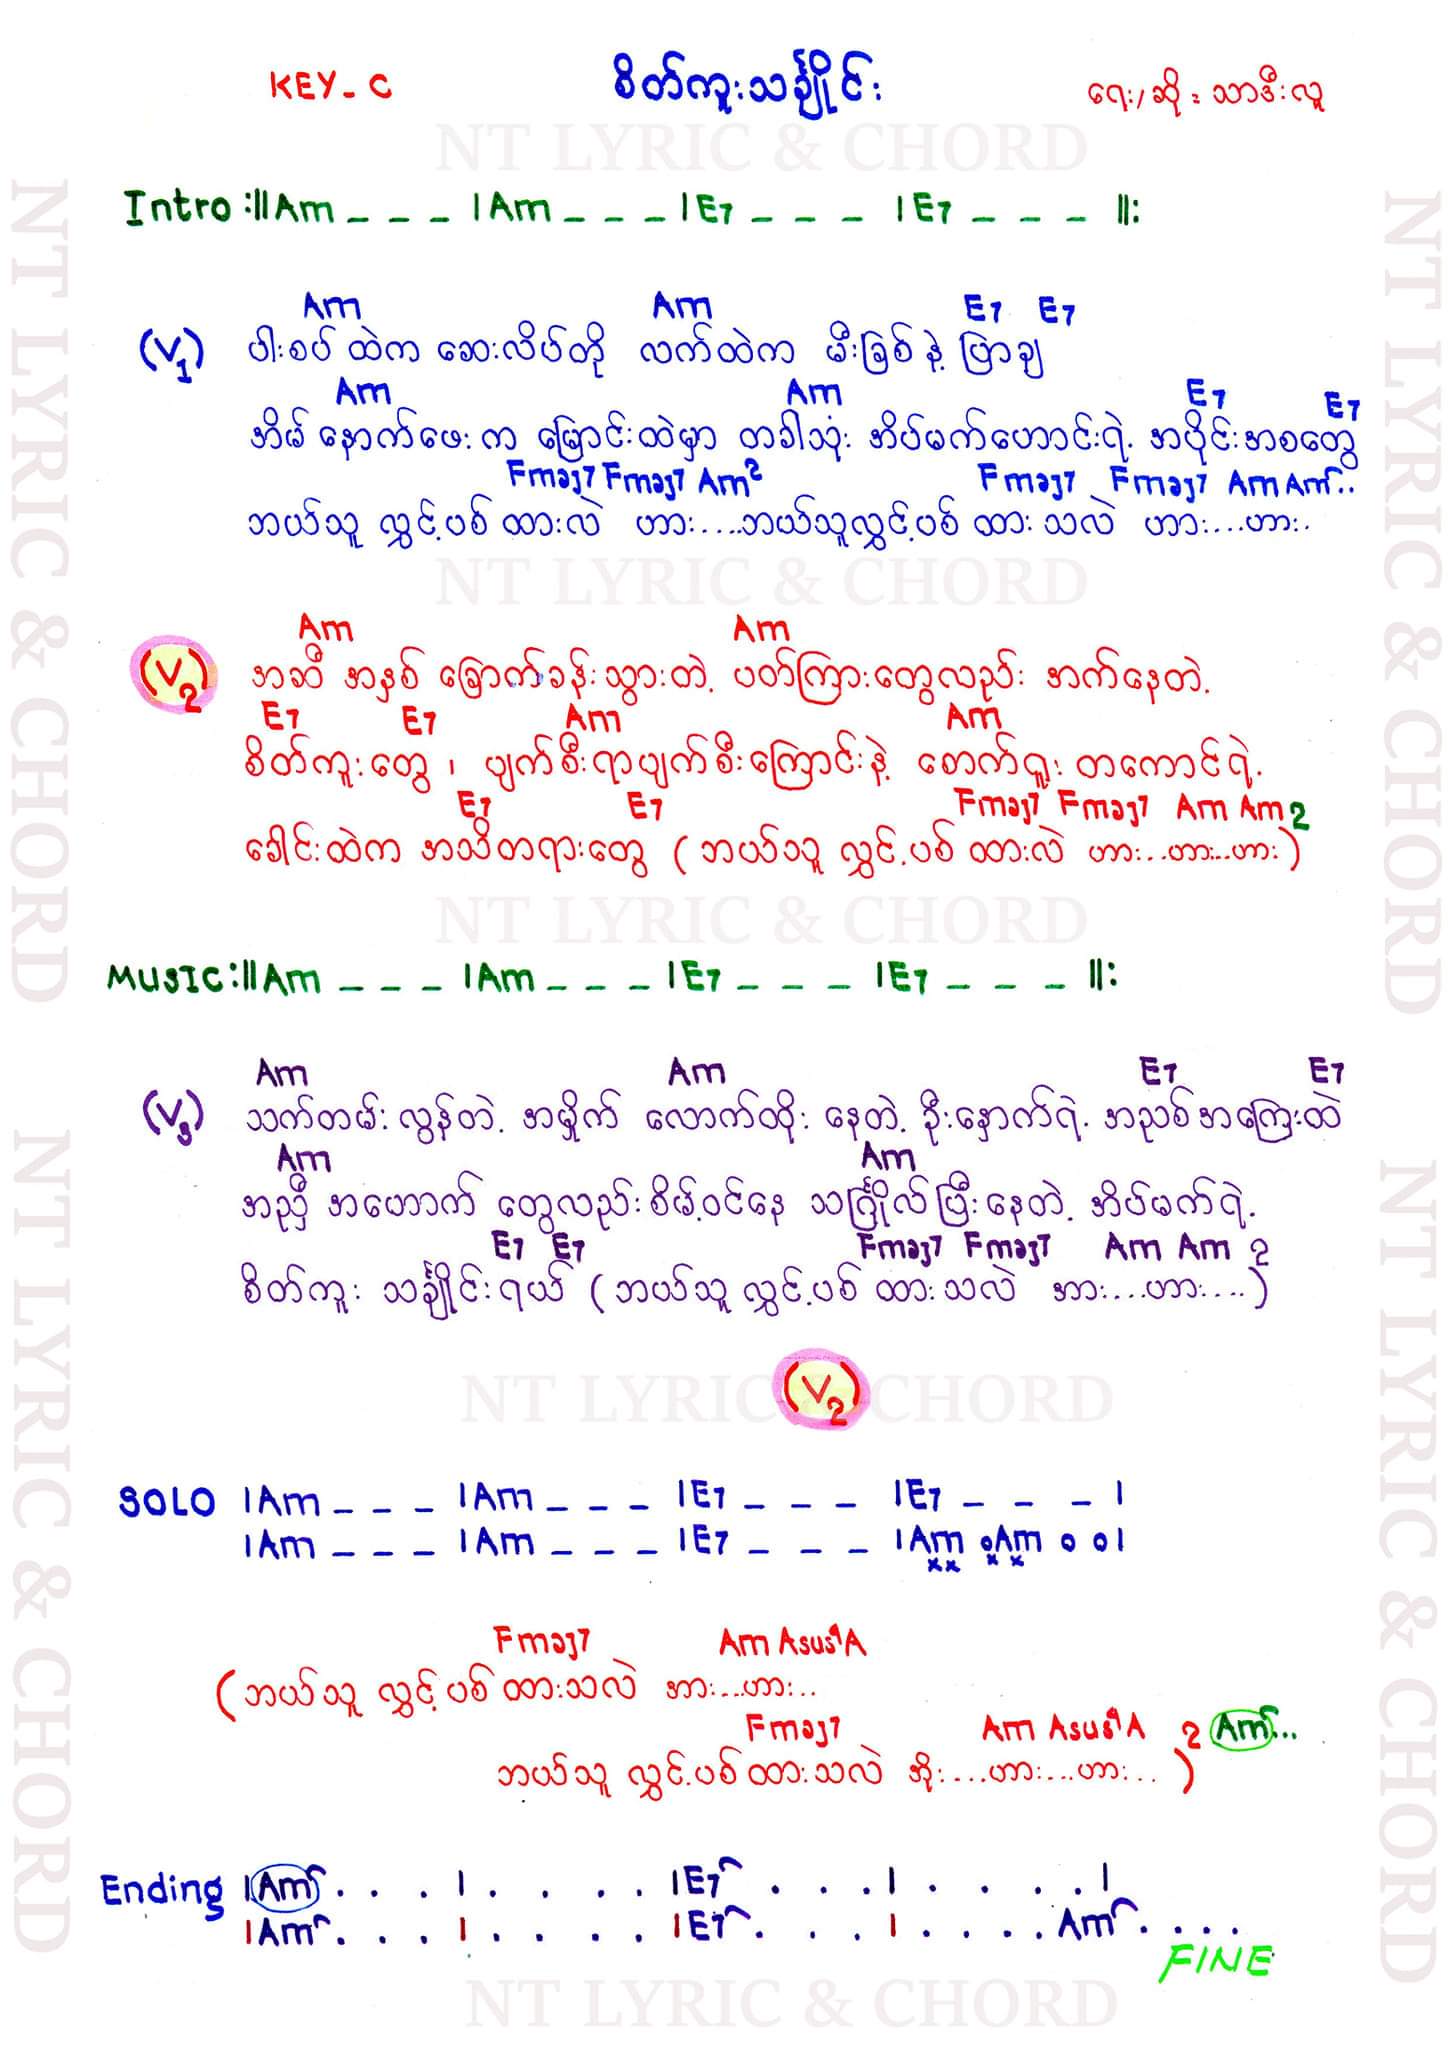 KEY - C စိတ်ကူးသင်္ချိုင်း ရေး/ဆို = သာဒီးလူ
NT LYRIC & CHORD
Intro :||Am _ _ _ |Am _ _ _ |E7 _ _ _ |E7 _ _ _ ||:
Am Am E7 E7
(V1) ပါးစပ် ထဲက ဆေးလိပ်တို လက်ထဲက မီးခြစ် နဲ့ ပြာချ
Am Am E7 E7
အိမ် နောက်ဖေး က မြောင်းထဲမှာ တခါသုံး အိပ်မက်ဟောင်းရဲ့ အပိုင်းအစတွေ
Fmaj7 Fmaj7 Am2 Fmaj7 Fmaj7 Am Am...
ဘယ်သူ လွှင့်ပစ် ထားလဲ ဟား....ဘယ်သူလွှင့်ပစ် ထား သလဲ ဟား....ဟား.
NT LYRIC & CHORD
Am Am
(V2) အဆီ အနှစ် ခြောက်ခန်းသွားတဲ့ ပတ်ကြားတွေလည်း အက်နေတဲ့
E7 E7 Am Am
စိတ်ကူးတွေ ၊ ပျက်စီးရာပျက်စီးကြောင်းနဲ့ စောက်ရူး တကောင်ရဲ့
E7 E7 Fmaj7 Fmaj7 Am Am 2
ခေါင်းထဲက အသိတရားတွေ (ဘယ်သူ လွှင့်ပစ် ထားလဲ ဟား...ဟား...ဟား)
NT LYRIC & CHORD
MUSIC:||Am _ _ _ |Am _ _ _ |E7 _ _ _ |E7 _ _ _ ||:
Am Am E7 E7
(V3) သက်တမ်း လွန်တဲ့ အမှိုက် လောက်ထိုး နေတဲ့ ဦးနှောက်ရဲ့ အညစ်အကြေးထဲ
Am Am
အညှီ အဟောက် တွေလည်းစိမ့်ဝင်နေ သင်္ဂြိုလ်ပြီးနေတဲ့ အိပ်မက်ရဲ့
E7 E7 Fmaj7 Fmaj7 Am Am 2
စိတ်ကူး သင်္ချိုင်းရယ် (ဘယ်သူ လွှင့်ပစ် ထားသလဲ အား....ဟား....)
(V2)
NT LYRIC & CHORD
SOLO |Am _ _ _ |Am _ _ _ |E7 _ _ _ |E7 _ _ _ |
|Am _ _ _ |Am _ _ _ |E7 _ _ _ |Am o Am o o|
x x x x
Fmaj7 Am Asus4 A
(ဘယ်သူ လွှင့်ပစ် ထားသလဲ အား...ဟား..
Fmaj7 Am Asus4 A 2 Am...
ဘယ်သူ လွှင့်ပစ် ထားသလဲ အိုး....ဟား...ဟား...)
Ending |Am . . . | . . . . |E7 . . . | . . . . |
|Am . . . | . . . . |E7 . . . | . . . . Am . . . .
FINE
NT LYRIC & CHORD
NT LYRIC & CHORD
NT LYRIC & CHORD
NT LYRIC & CHORD
NT LYRIC & CHORD